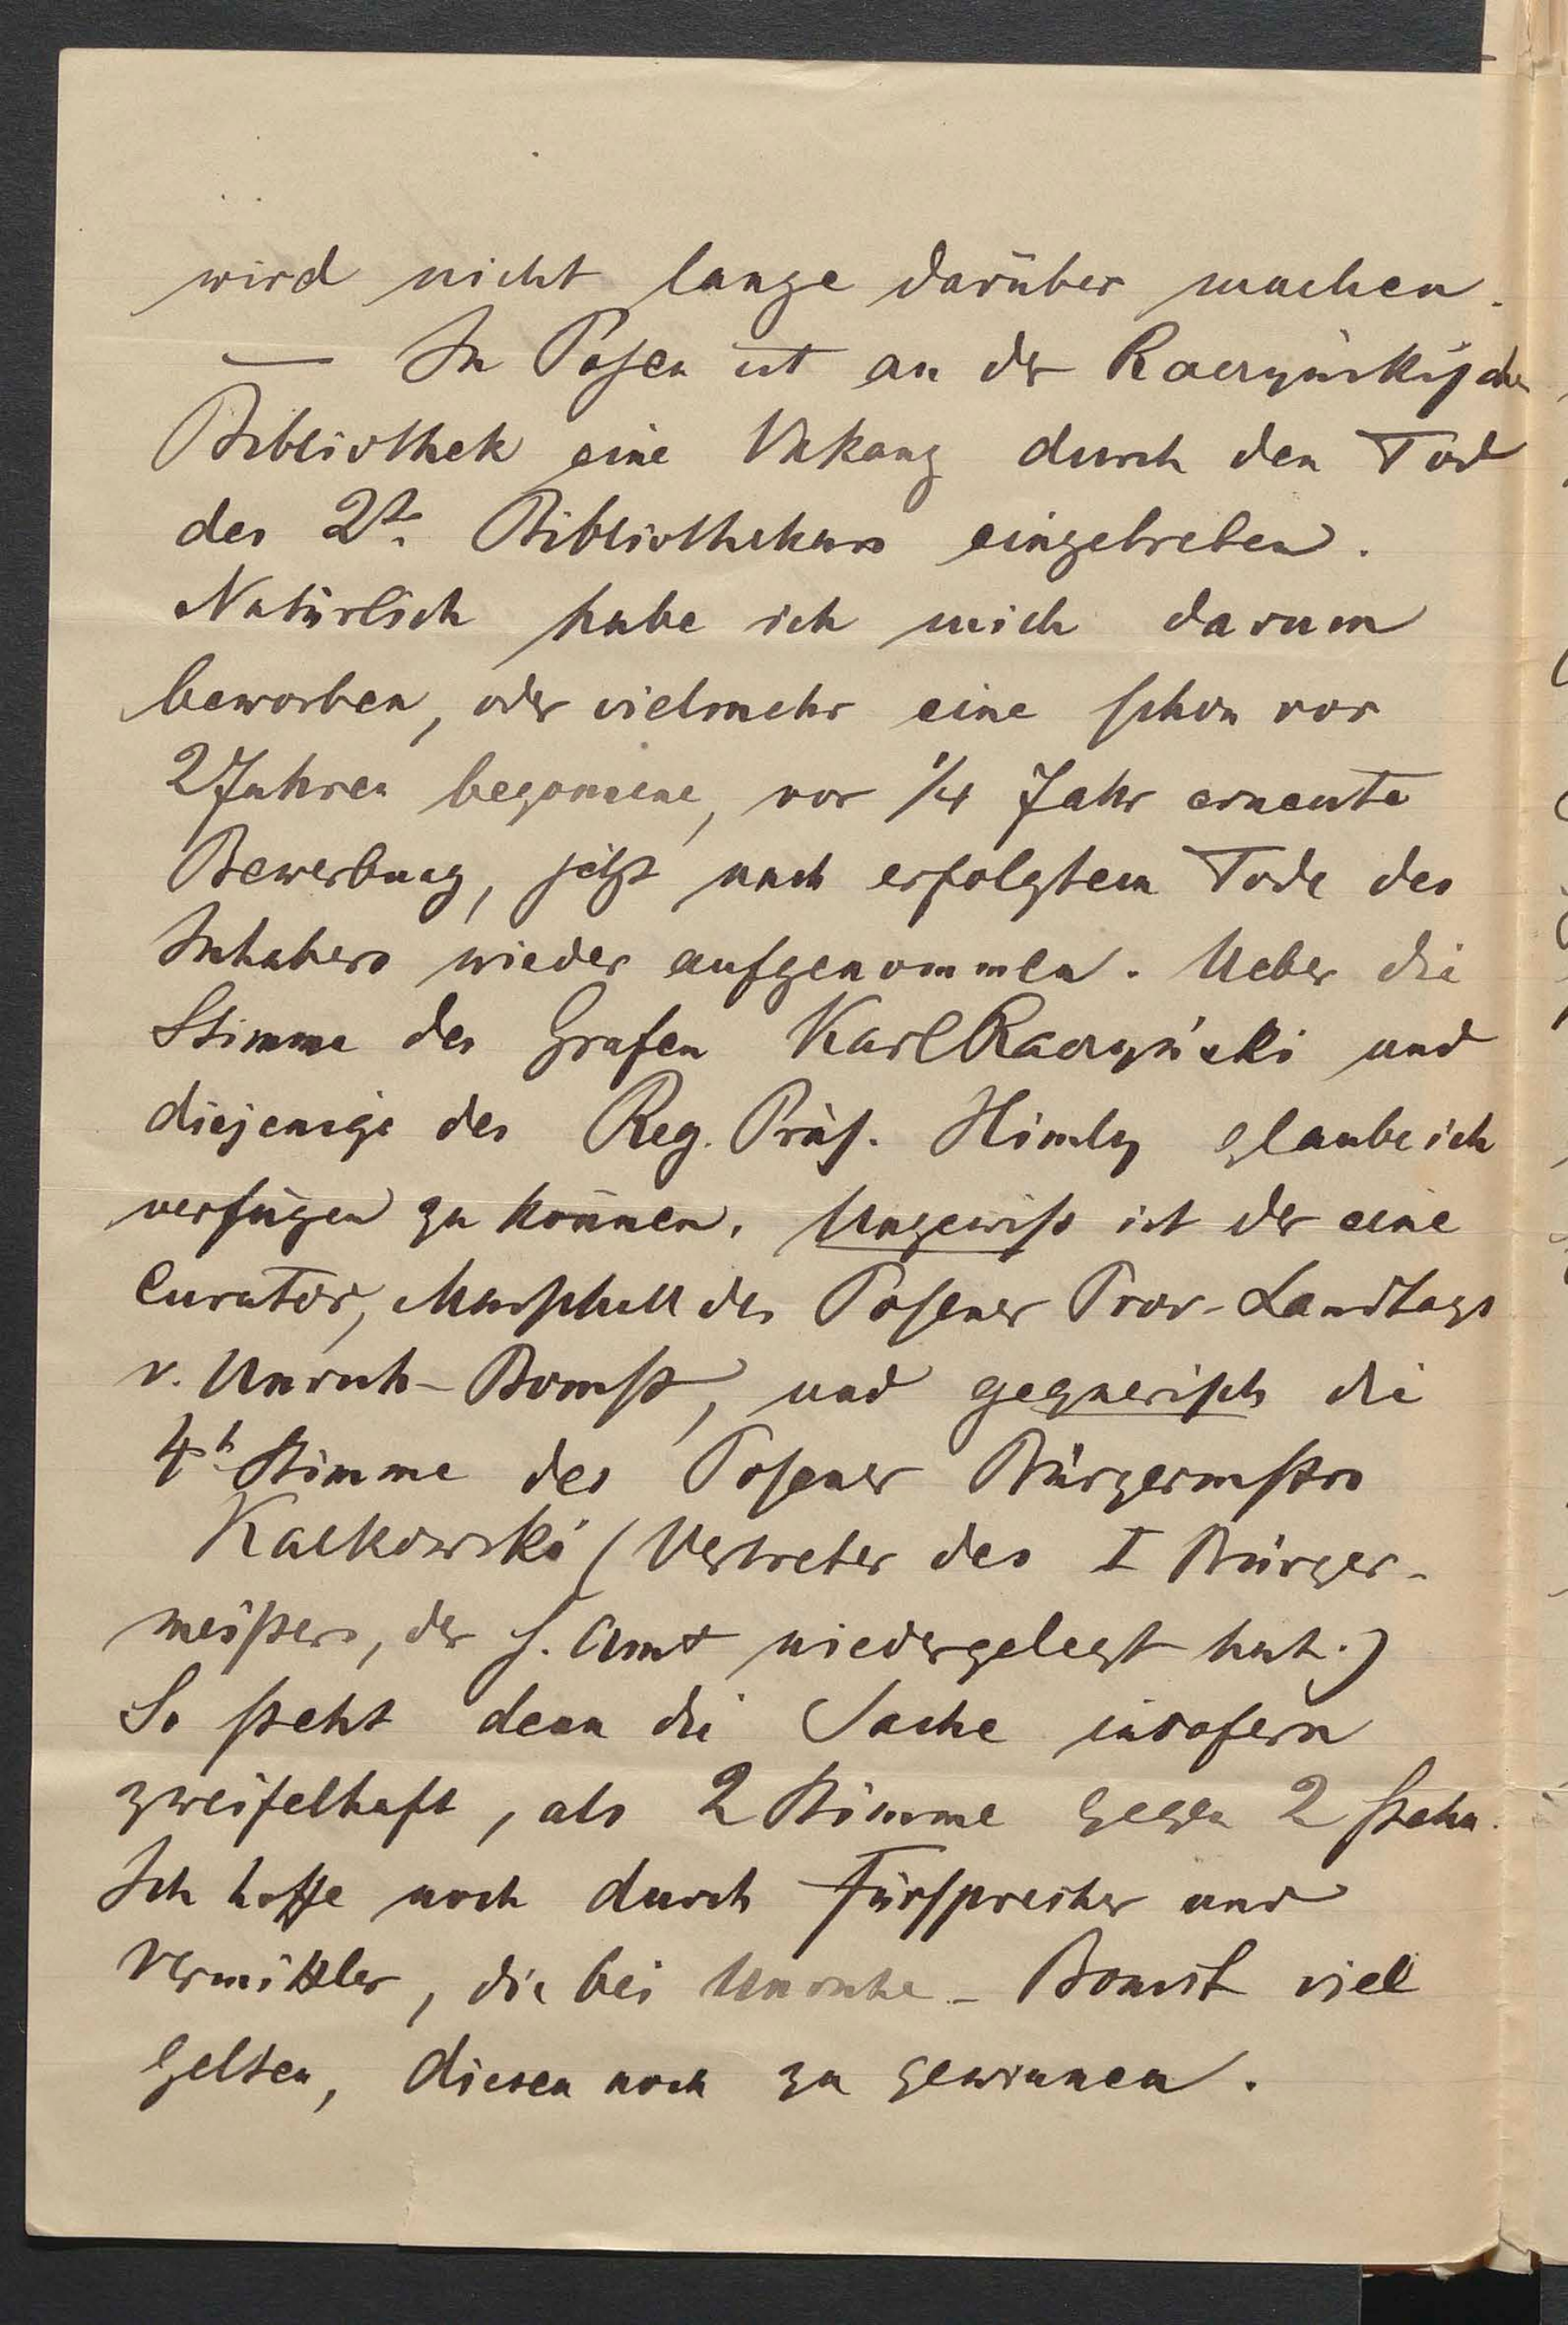 wird nicht lange darüber machen.
— In Posen ist an der Raczyńskischen
Bibliothek eine Vakanz durch den Tod
des 2t. Bibliothekars eingetreten.
Natürlich habe ich mich darum
beworben, oder vielmehr eine schon vor
2 Jahren begonnene, vor 1/4 Jahr erneute
Bewerbung, jetzt nach erfolgtem Tode des
Inhabers wieder aufgenommen. Ueber die
Stimme des Grafen Karl Raczyński und
diejenige des Reg. Präs. Himly glaube ich
verfügen zu können. Ungewiss ist der eine
Curator, Marschall des Posener Prov-Landtags
v. Unruh-Bomst, und gegnerisch die
4t Stimme des Posener Bürgermstrs
Kalkowski (Vertreter des I Bürger-
meisters, der s. Amt niedergelegt hat.)
So steht denn die Sache insofern
zweifelhaft, als 2 Stimme gegen 2 stehn.
Ich hoffe noch durch Fürsprecher und
Vermittler, die bei Unruhe-Bomst viel
gelten, diesen noch zu gewinnen.